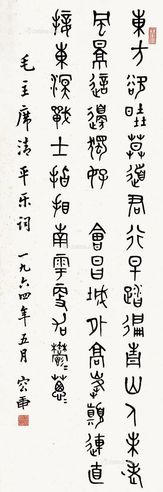 東方欲曉莫道君行早踏徧青山人未老
風景這邊獨好 會昌城外高峯顛連直
接東溟戰士指看南粵更加鬱蔥
毛主席清平乐词 一九六四年五月